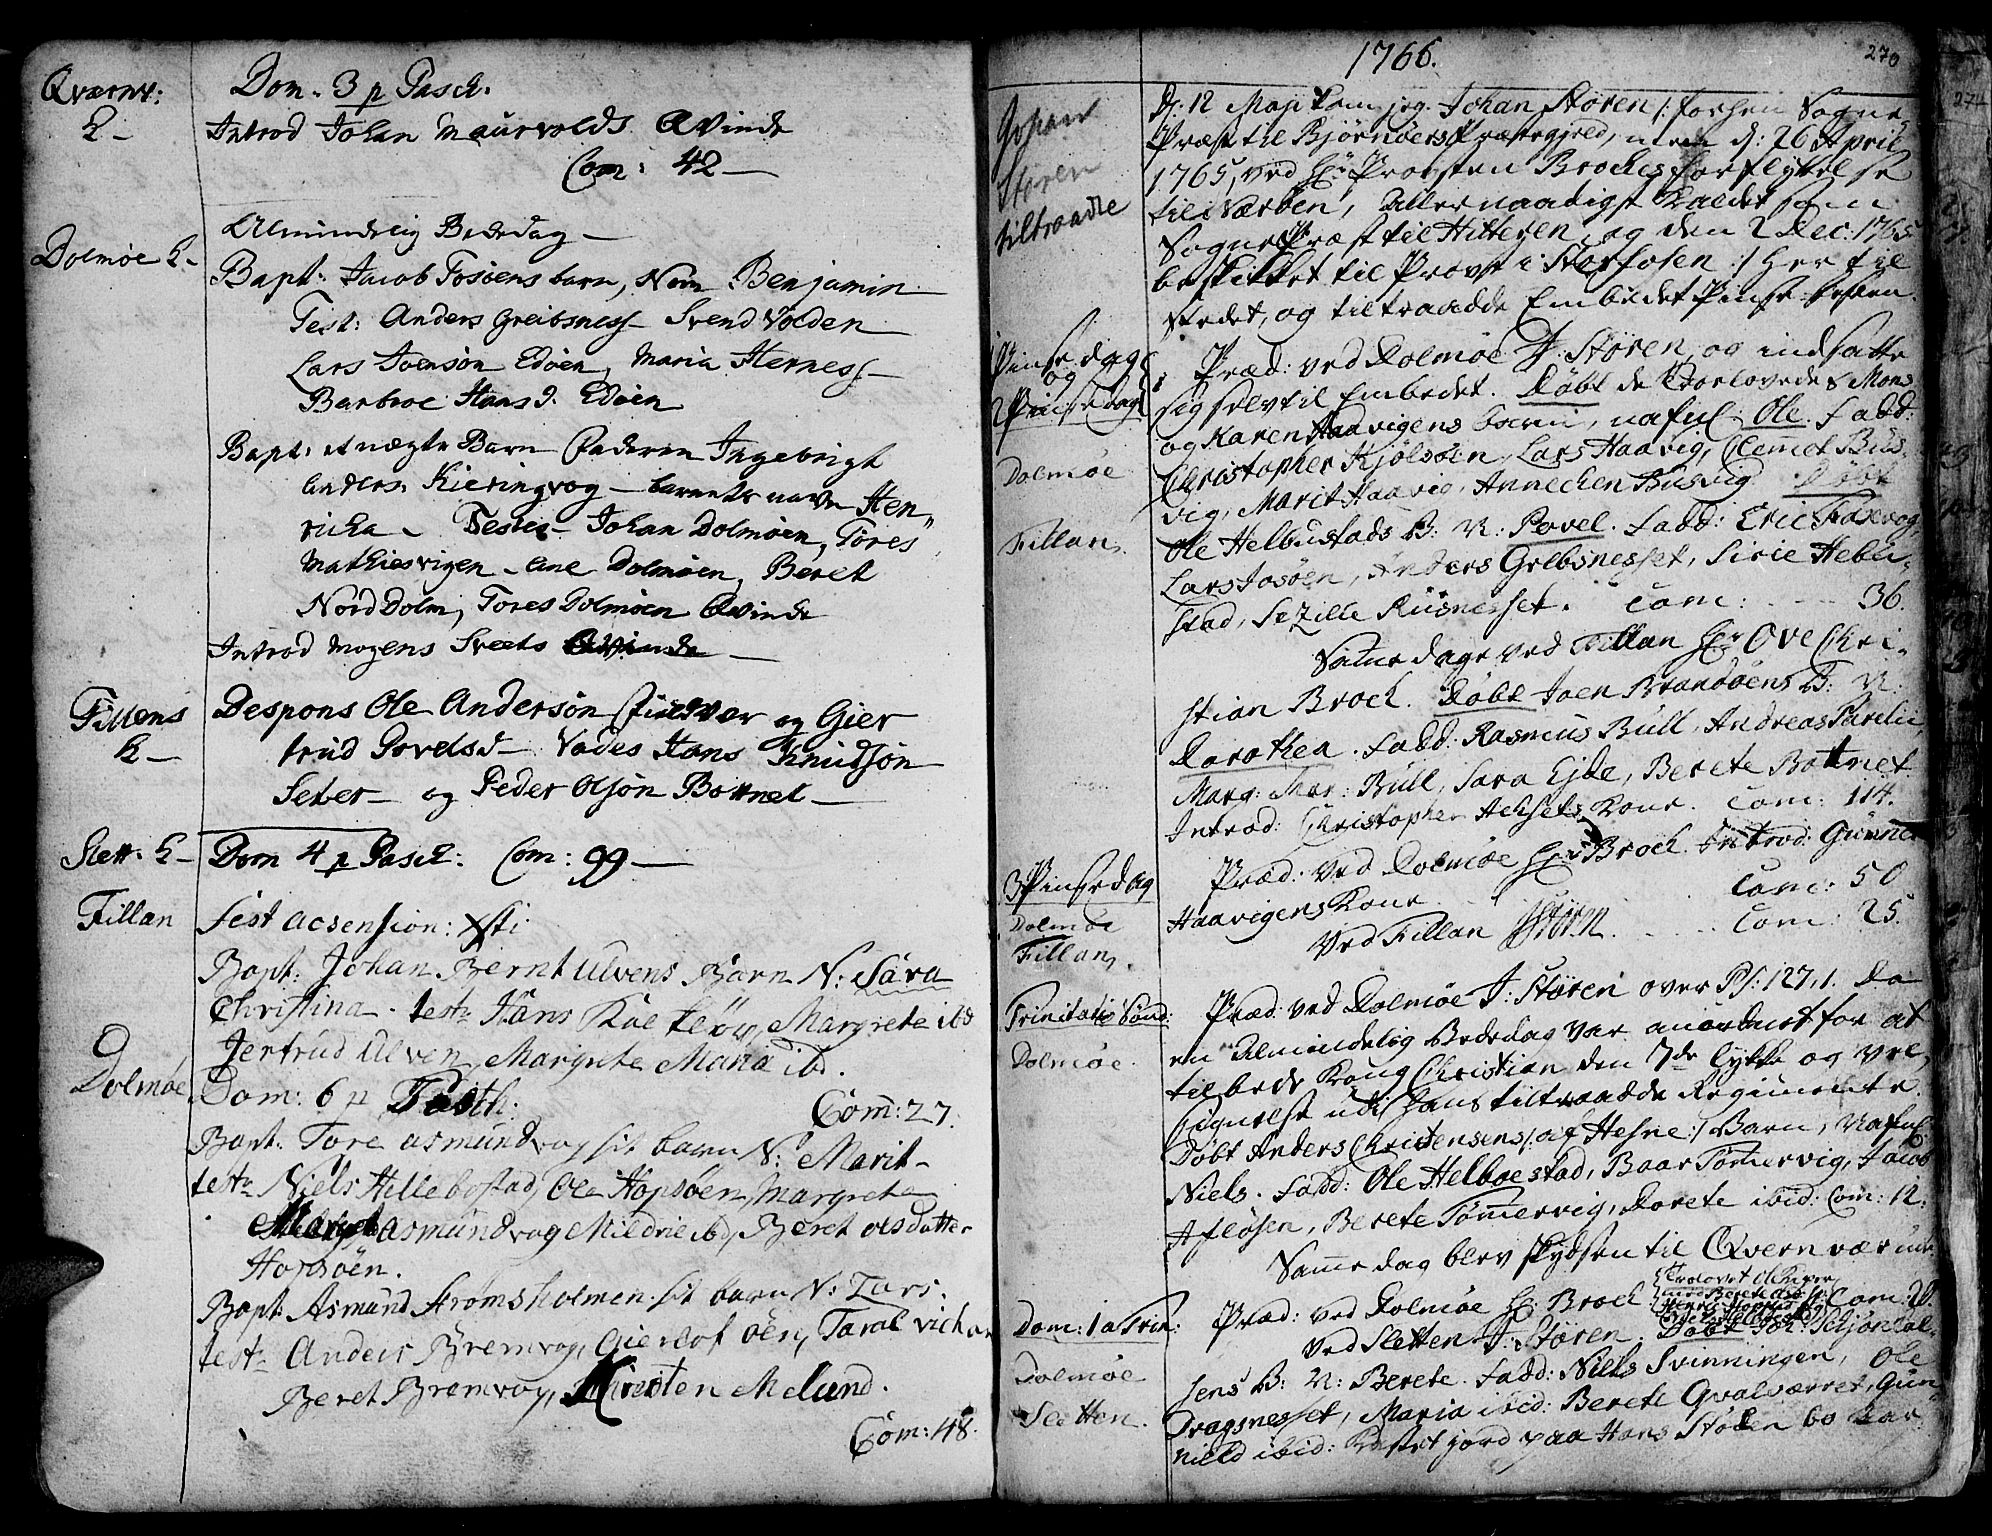 Qværnv:
K-
Dom. 3 p Pasch.
Introd Johan Maurvolds Qvinde
Com: 42
Dolmøe K-
Almindelig Bededag
Bapt: Jacob Fosøens barn, Nom Benjamin
Test: Anders Greibsness Svend Volden
Lars Joensøn Edøen, Maria Herness
Barbroe Hans D. Edøen
Bapt: et uægte Barn Faderen Ingebrigt
Anders. Kieringvog - barnets navn Hen"
richa. Testes Johan Dolmøen, Tores
Mathiesvigen - Ane Dolmøen, Beret
Nord Dolm, Tores Dolmøen Qvinde
Introd Mogens Sveets Qvinde
Fillens
K-
Despons Ole Andersøn og Gier
trud Povelsd - Vades Hans Knudsøn
Seter - og Peder Olsøn Bottnet
Slett. K-
Dom 4 p Pasch: Com: 99
Fillan
Fest acsension: Xsti
Bapt: Johan Bernt Ulvens Barn N: Sara
Christina. test: Hans Margrete ibd
Jertrud Ulven, Margrete Maria ibd.
Dolmøe
Dom: 6 p Pasch:
Com: 27.
Bapt: Tore asmundvog sit barn N: Marit
test: Niels Hillebostad, Ole Hopsøen, Margrete
asmundvog Mildrie ibd, Beret olsdatter
Hopsøen.
Bapt: Asmund Strømsholmen sit barn N: Lars.
test: Anders Bremvog, øen, Taral vichan
Beret Bremvog, Kirsten Melund.
Com: 48.
1766.
270
Johan
Støren
tiltraadte
D: 12 Maji kom jeg Johan Støren /: forhen Sogne
Præst til Bjørnøers Præstegjeld, men d: 26 April
1765, ved Hr Probsten Broches forflyttelse
til Nærøen, Allernaadigst Kaldet som
Sogne Præst til Hitteren, og den 2 Dec: 1765
beskikket til Provst i Størfosen :/ her til
Stedet, og tiltraadde Embedet Pinse Festen.
1 Pinsedag
og
2 Pinsedag
Dolmøe
Præd: ved Dolmøe J: Støren, og indsatte
sig selv til Embedet. Døbt de Trolovede Mons
og Karen Haavigens barn, nafnl. Ole. Fadd:
Christopher Kjølsøen, Lars Haavig, Clemet Bus-
vig, Marit Haavig, Annechen Busvig. Døbt
Fillan.
Ole Helbustads B: N: Povel. Fadd: Eric Faxvog,
Lars Josøen, Anders Grebsnesset, Sirie Helbu-
stad, Sezille Riisnesset. Com: 36.
Samme dage ved Fillan Hr Ove Chri-
stian Broch. Døbt Joen Brandøens B: N:
Dorothea. Fadd: Rasmus Bull, Andreas Parelii,
Marg: Mar: Bull, Sara Ejde, Berete Bottnet
Introd: Christopher Achsets Kone. Com: 114.
3 Pinsedag
Dolmøe
Fillan.
Præd: ved Dolmøe Hr: Broch. Introd: Gunner
Haavigens Kone. Com: 50
Ved Fillan JStøren. Com: 25.
Trinitatis Sønd:
Dolmøe.
Præd: ved Dolmøe J: Støren over Ps: 127,1. Da
en Almindelig Bededag var anordnet for at
tilbede Kong Christian den 7de lykke og Vel-
signelse udi Hans tiltraadde Regimente.
Døbt Anders Christensens /: af Hesne :/ Barn, Nafnl:
Niels. Fadd: Ole Helboestad, Baar Tømervig, Jacob
Afløsen, Berete Tømervig, Dorete ibid: Com: 12.
Samme dag blev skydsen til Qvernvær
Dom: 1 a Trin:
Dolmøe
Præd: ved Dolmøe Hr: Broch Com: 20.
Sletten.
Ved Sletten J: Støren. Døbt Joh:
sens B: N: Berete. Fadd: Niels Svinningen, Ole
Dragsnesset, Maria ibid: Berete Qvalværret, Gun-
nild ibid: Kastet jord paa Hans Støten